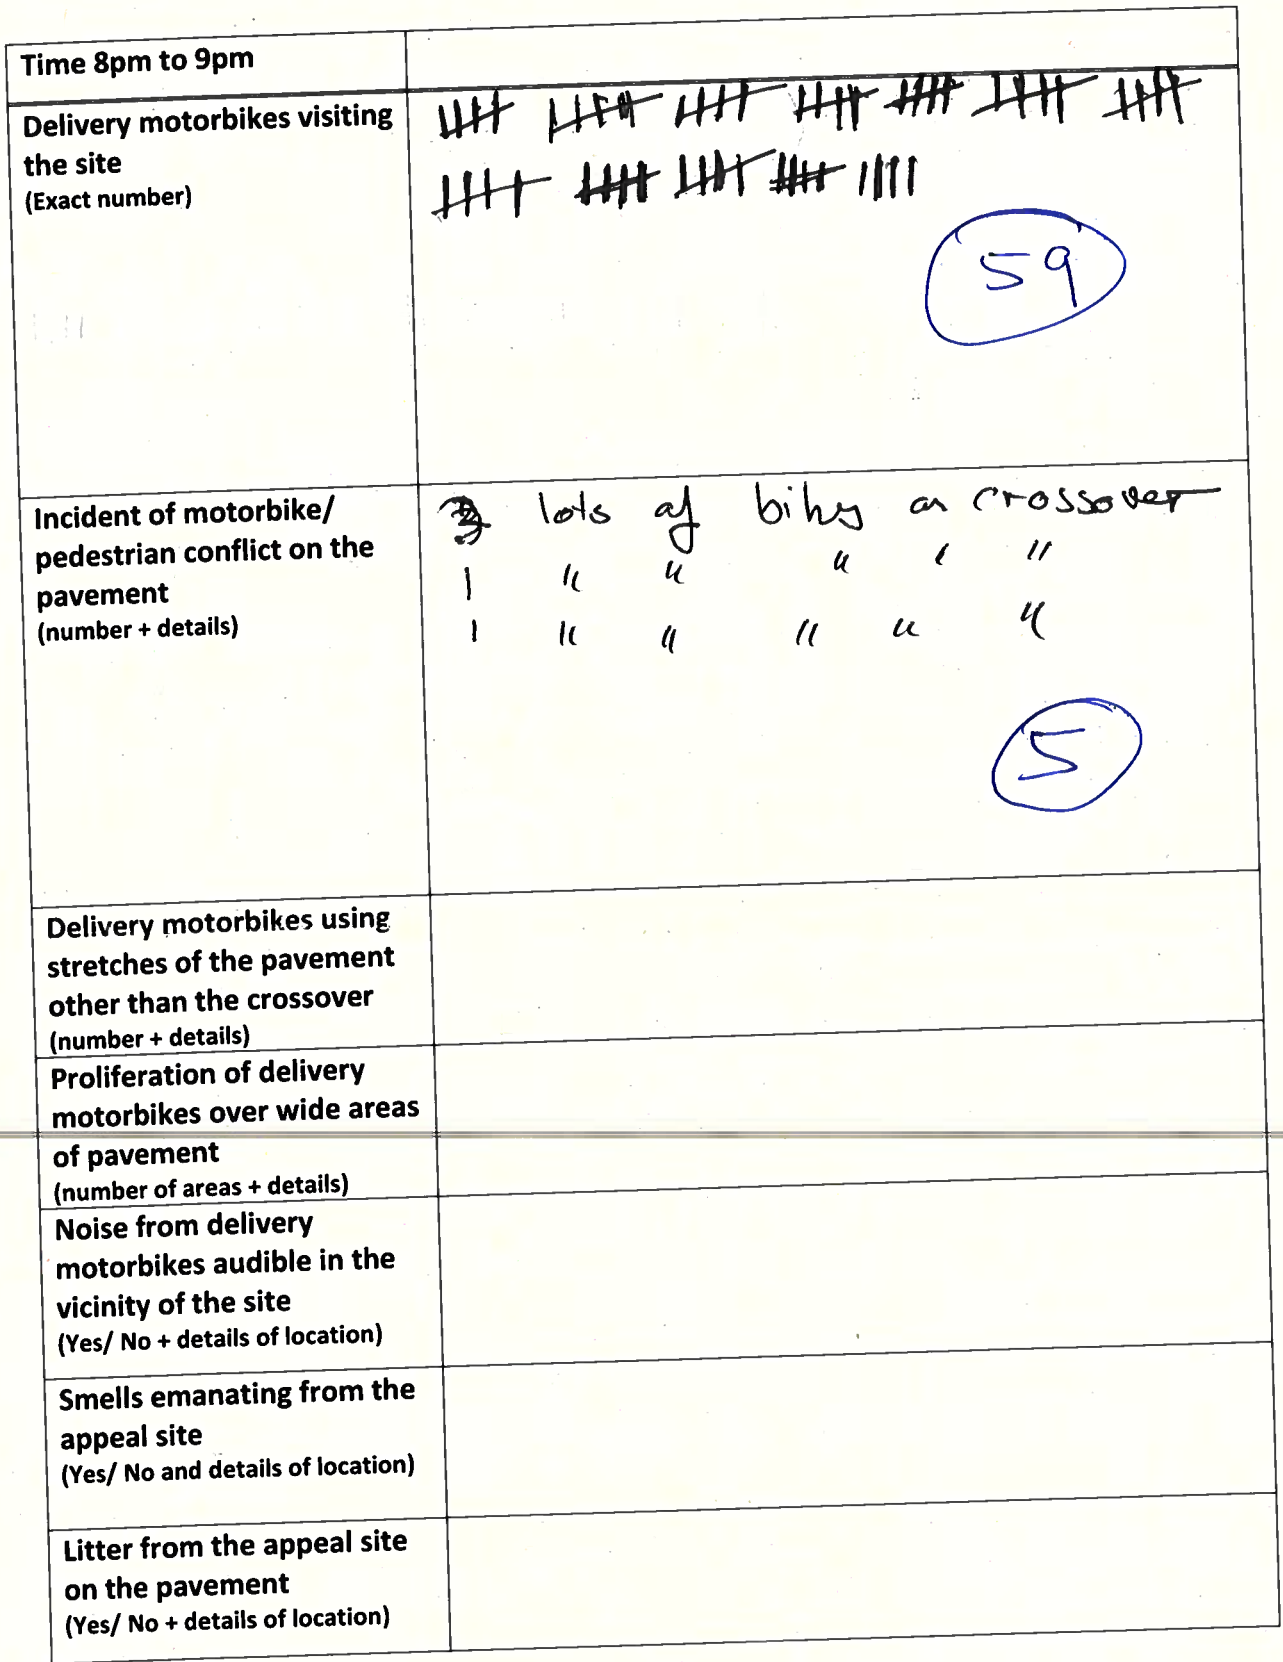 Time 8pm to 9pm
Delivery motorbikes visiting
the site
(Exact number)
59
Incident of motorbike/
pedestrian conflict on the
pavement
(number + details)
3 lots of bikes on crossover
1 " " " " "
1 " " " " "
5
Delivery motorbikes using
stretches of the pavement
other than the crossover
(number + details)
Proliferation of delivery
motorbikes over wide areas
of pavement
(number of areas + details)
Noise from delivery
motorbikes audible in the
vicinity of the site
(Yes/ No + details of location)
Smells emanating from the
appeal site
(Yes/ No and details of location)
Litter from the appeal site
on the pavement
(Yes/ No + details of location)